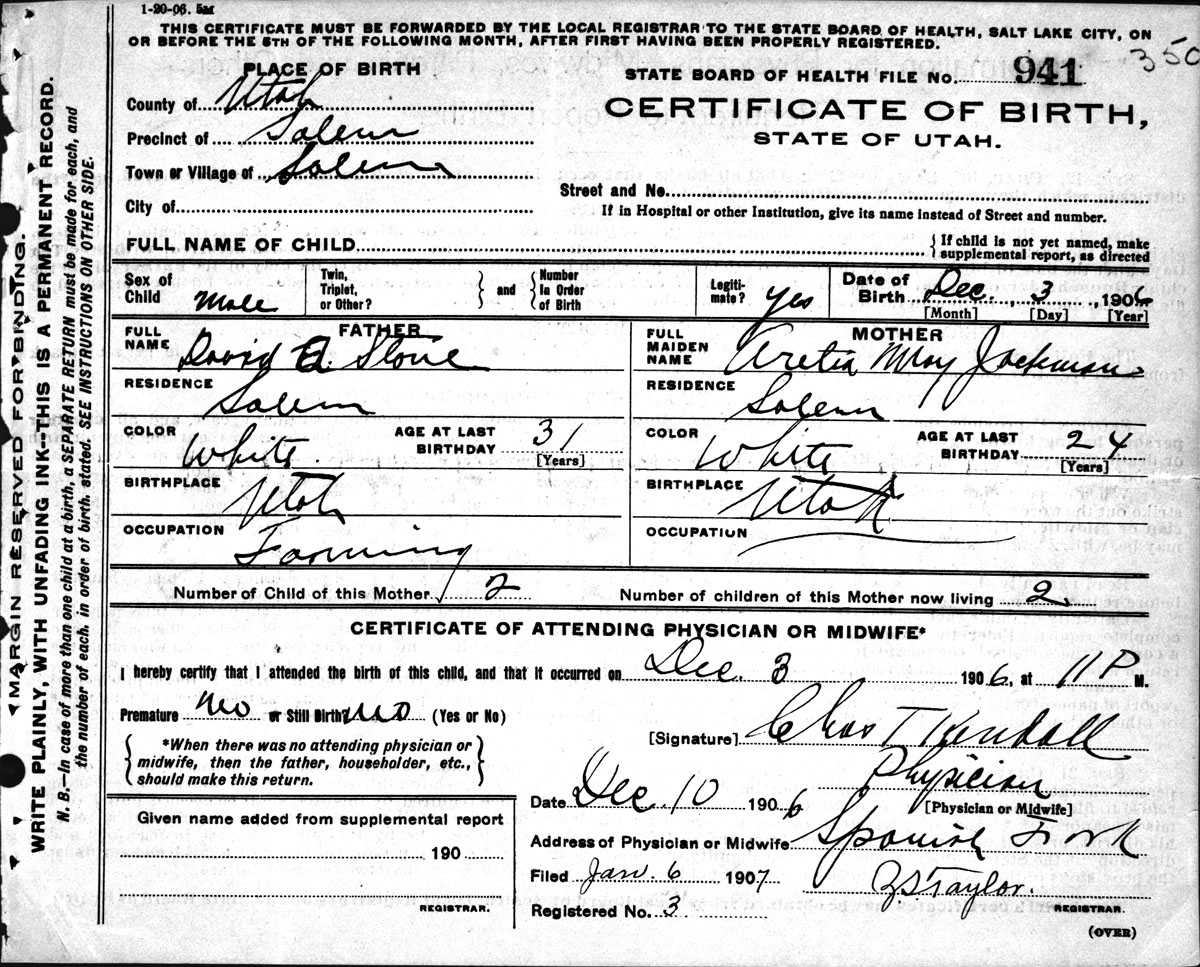 1-20-06. 5M
THIS CERTIFICATE MUST BE FORWARDED BY THE LOCAL REGISTRAR TO THE STATE BOARD OF HEALTH, SALT LAKE CITY, ON
OR BEFORE THE 5TH OF THE FOLLOWING MONTH, AFTER FIRST HAVING BEEN PROPERLY REGISTERED.
350
PLACE OF BIRTH
STATE BOARD OF HEALTH FILE No. 941
County of Utah
CERTIFICATE OF BIRTH,
Precinct of Salem
STATE OF UTAH.
Town or Village of Salem
Street and No.
City of
If in Hospital or other Institution, give its name instead of Street and number.
FULL NAME OF CHILD
{ If child is not yet named, make
supplemental report, as directed
Sex of Child Male
Twin, Triplet, or Other? } and { Number In Order of Birth
Legiti-mate? yes
Date of Birth Dec. , 3 , 1906
[Month] [Day] [Year]
FATHER
FULL NAME David A. Stone
RESIDENCE
Salem
COLOR White
AGE AT LAST BIRTHDAY 31
[Years]
BIRTHPLACE Utah
OCCUPATION
Farming
MOTHER
FULL MAIDEN NAME Aretia May Jackman
RESIDENCE
Salem
COLOR White
AGE AT LAST BIRTHDAY 24
[Years]
BIRTHPLACE Utah
OCCUPATION
Number of Child of this Mother 2 Number of children of this Mother now living 2
CERTIFICATE OF ATTENDING PHYSICIAN OR MIDWIFE*
I hereby certify that I attended the birth of this child, and that it occurred on Dec. 3 1906, at 11 P M.
Premature No or Still Birth? No (Yes or No)
{ *When there was no attending physician or
midwife, then the father, householder, etc.,
should make this return. }
[Signature] Chas T Kendall
Physician
Date Dec 10 1906 [Physician or Midwife]
Address of Physician or Midwife Spanish Fork
Filed Jan. 6 1907 Z S Taylor.
Registered No. 3 REGISTRAR.
(OVER)
Given name added from supplemental report
190
REGISTRAR.
MARGIN RESERVED FOR BINDING.
WRITE PLAINLY, WITH UNFADING INK--THIS IS A PERMANENT RECORD.
N. B.—In case of more than one child at a birth, a SEPARATE RETURN must be made for each, and
the number of each, in order of birth, stated. SEE INSTRUCTIONS ON OTHER SIDE.